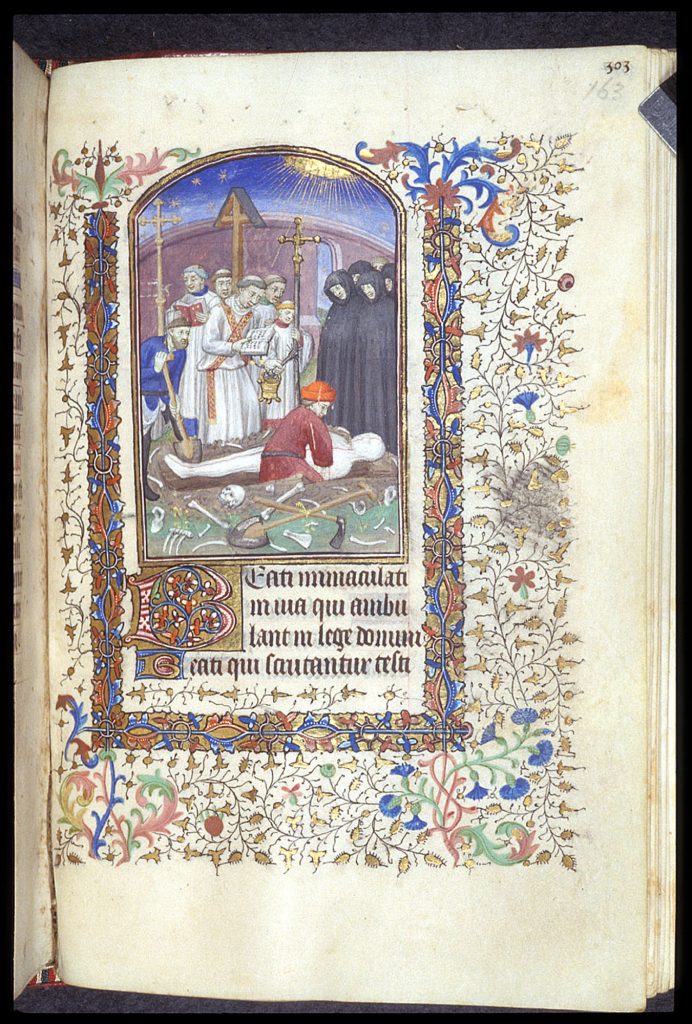 303
163
Beati immaculati
in uia qui ambu
lant in lege domini
Beati qui scrutantur testi